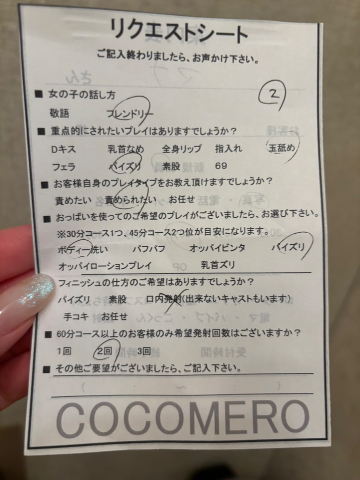 リクエストシート
ご記入終わりましたら、お声かけ下さい。
②
■ 女の子の話し方
敬語 フレンドリー
■ 重点的にされたいプレイはありますでしょうか?
Dキス 乳首なめ 全身リップ 指入れ 玉舐め
フェラ パイズリ 素股 69
■ お客様自身のプレイタイプをお教え頂けますでしょうか?
責めたい 責められたい お任せ
■ おっぱいを使ってのご希望のプレイがございましたら、お選び下さい。
※30分コース1つ、45分コース2つ位が目安になります。
ボディー洗い パフパフ オッパイビンタ パイズリ
オッパイローションプレイ 乳首ズリ
フィニッシュの仕方のご希望はありますでしょうか?
パイズリ 素股 口内発射(出来ないキャストもいます)
手コキ お任せ
■ 60分コース以上のお客様のみ希望発射回数はございますか?
1回 2回 3回
■ その他ご要望がございましたら、ご記入下さい。
COCOMERO